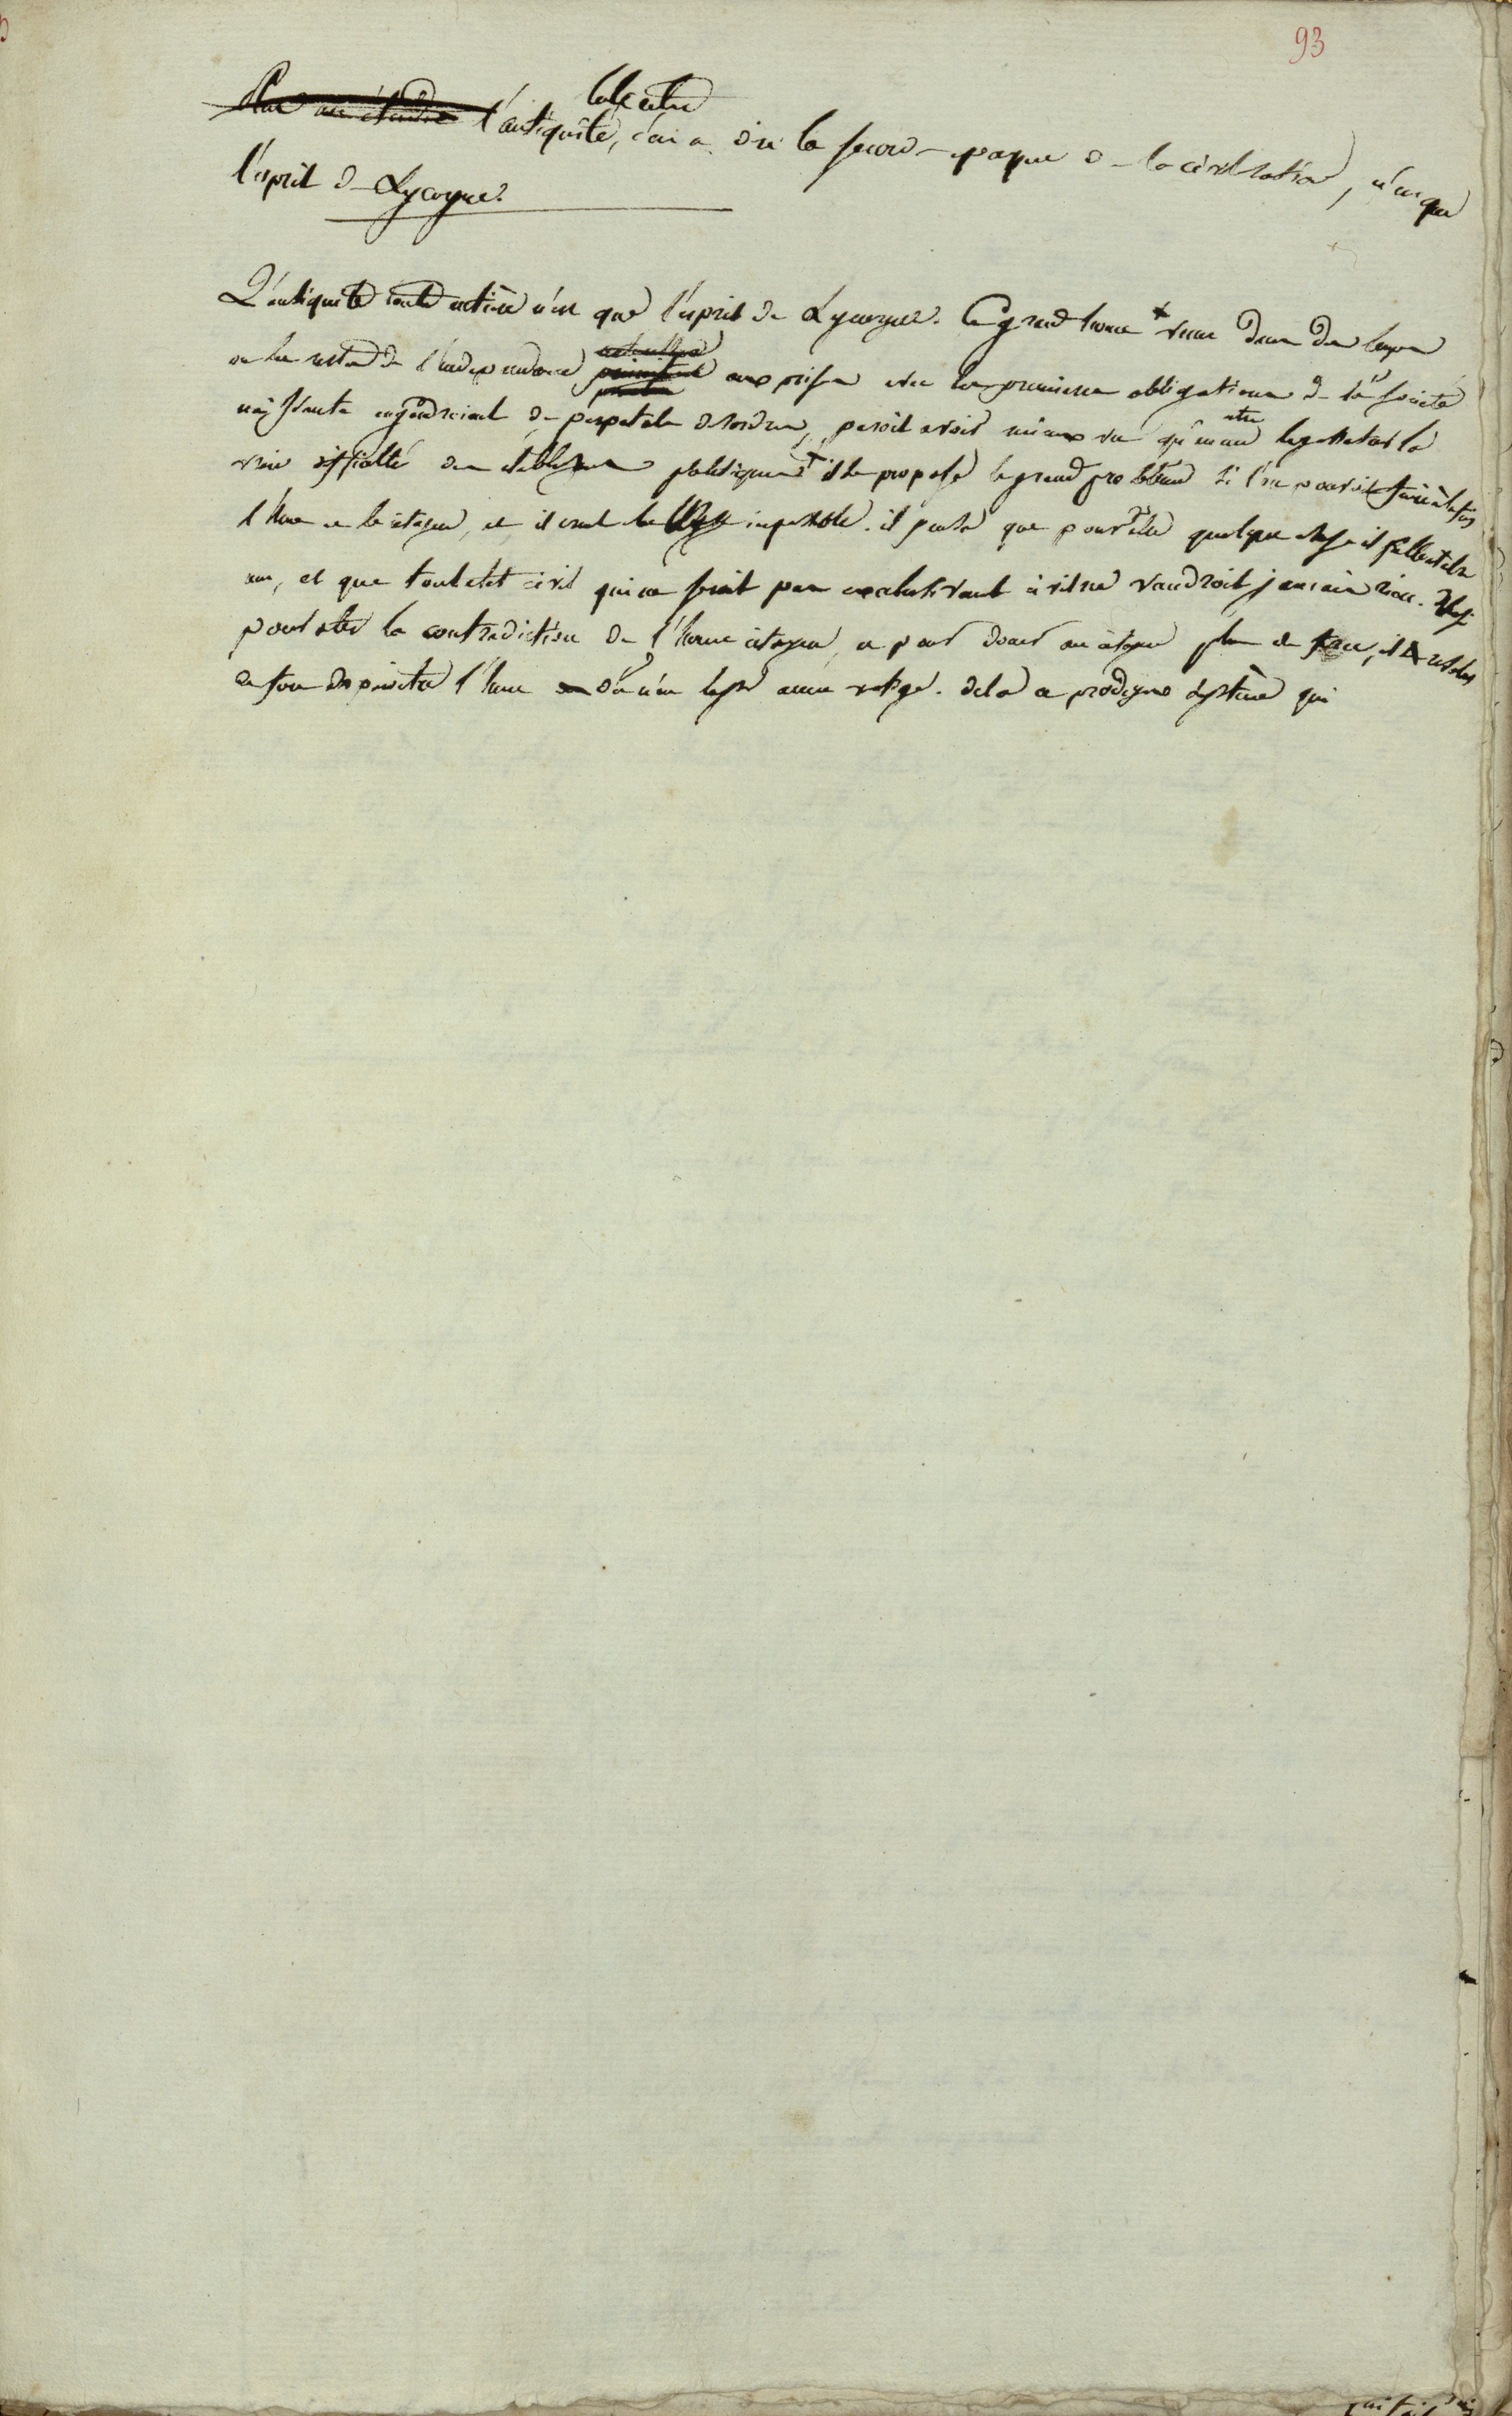 93
toute entière
l'antiquité, c'est a dire la seconde epoque de la civilisation, n'est que
l'esprit de Lycurgue.
L'antiquité toute entière n'est que l'esprit de Lycurgue. Ce grand homme venu dans des temps
ou les restes de l'independance aux prises avec les premieres obligations de la societé
autre
naissante engendroient de perpetuels desordres, paroit avoir mieux vu qu'aucun legislateur la
vraie difficulté des etablissemens politiques il se proposa le grand problème si l'on pouvoit faire à la fois
l'homme et le citoyen, et il crut la impossible. il pensa que pour être quelque chose il falloit être
un, et que tout etat civil qui ne seroit pas exclusivement civil ne vaudroit jamais rien.
pour oter la contradiction de l'homme citoyen, et pour donner au citoyen plus de force, il resolut
en son depouiller l'homme d'en n'en laisser aucun vestige. dela ce prodigieux systême qui